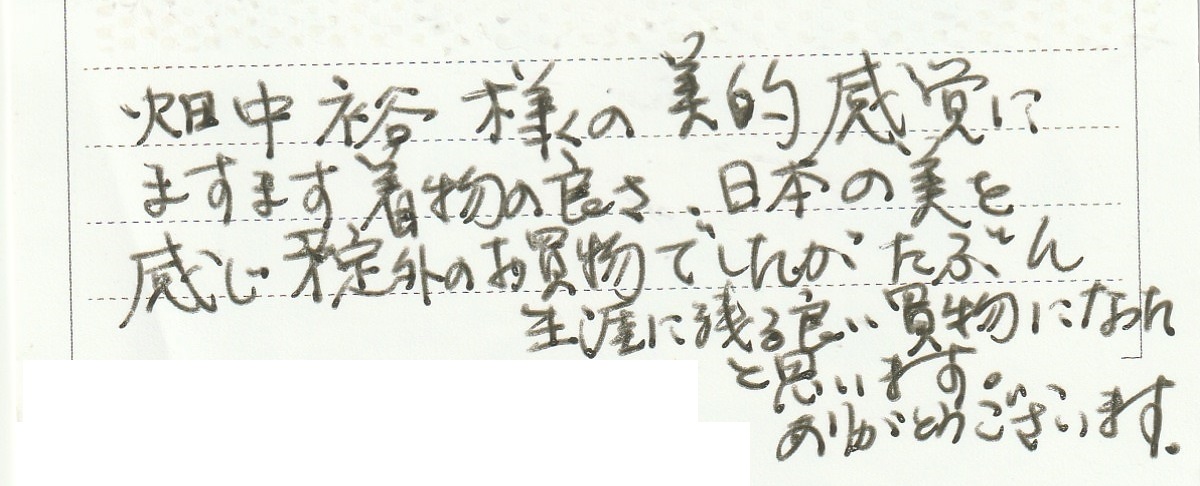 畑中裕様の美的感覚に
ますます着物の良さ、日本の美を
感じ予定外のお買物でしたがたぶん
生涯に残る良い買物になった
と思います。
ありがとうございます。